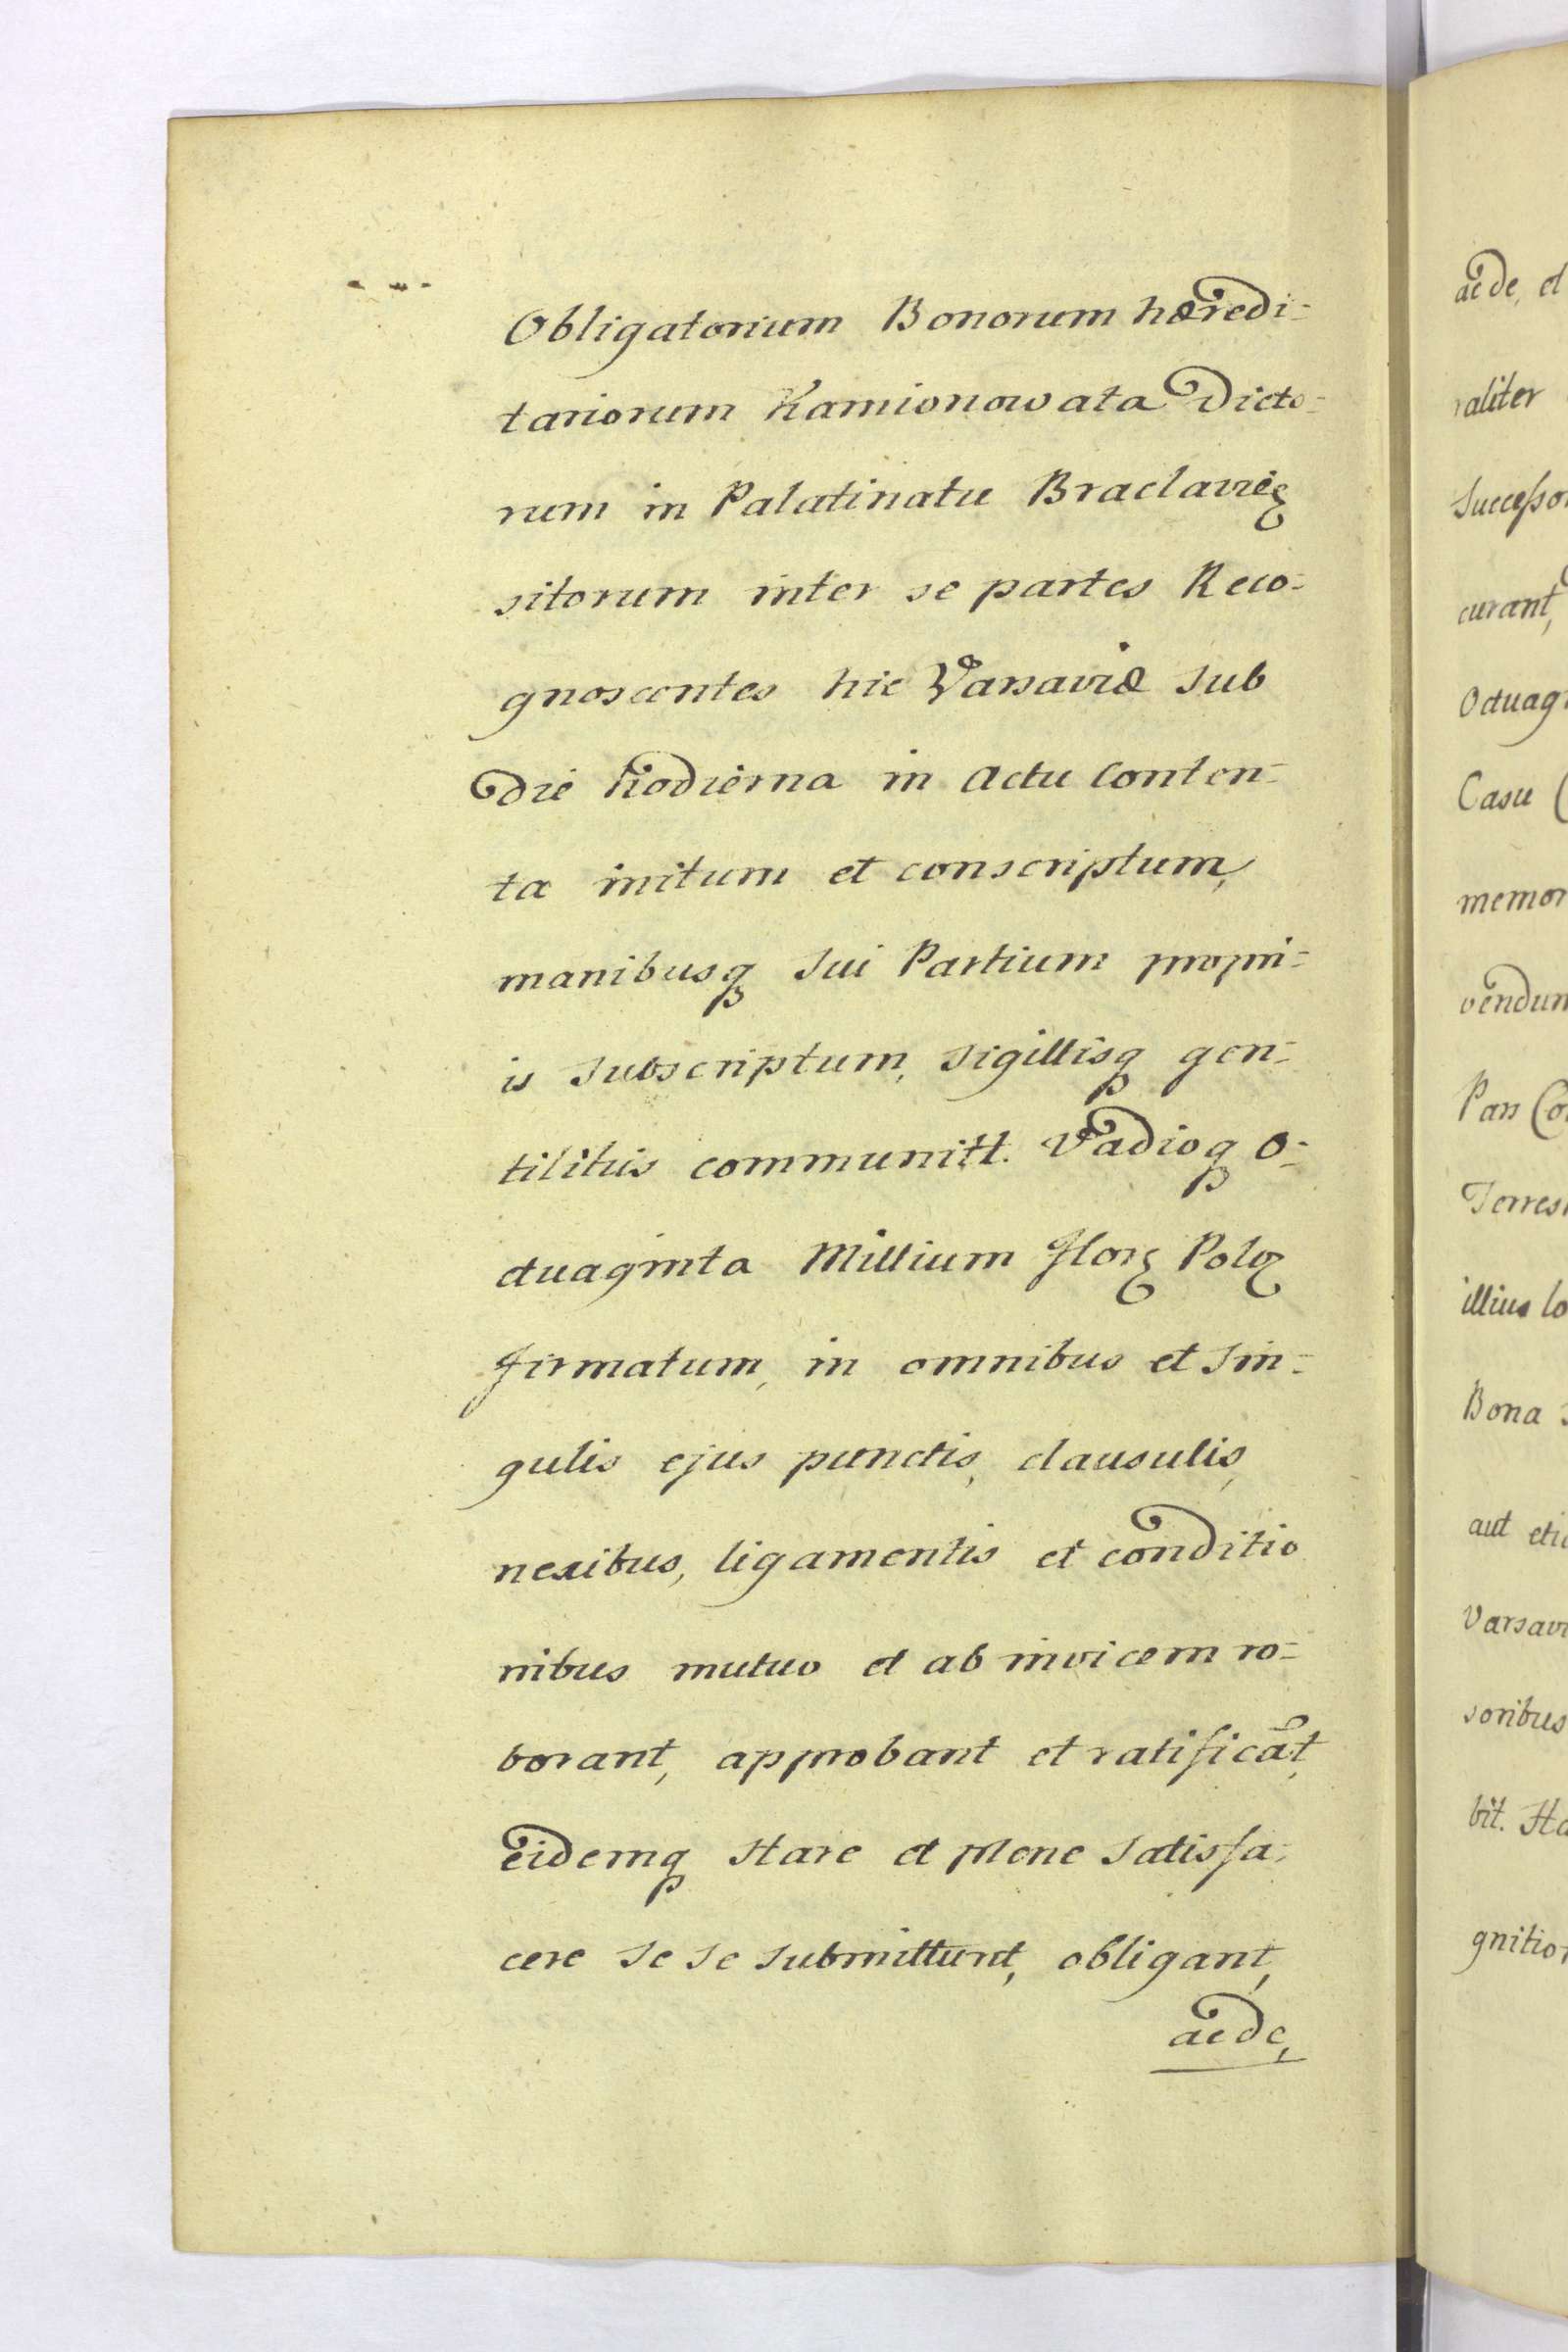 Obligatorium Bonorum hæredi=
tariorum Kamionowata Dicto=
rum in Palatinatu Braclavieȝ
sitorum inter se partes Reco=
gnoscentes hic Varsaviæ sub
die hodierna in Actu Conten=
ta initum et conscriptum,
manibusq sui Partium propri=
is subscriptum, sigillisq gen=
tilitiis communitt. Vadioq O=
ctuaginta Millium Florȝ Polȝ
firmatum, in omnibus et sin=
gulis ejus punctis, clausulis,
nexibus, ligamentis et conditio
nibus mutuo et ab invicem ro=
borant, approbant et ratificāt,
eidemq stare et plene satisfa=
cere se se submittunt, obligant,
ac de,
ac de, et
raliter
Successo
curant,
Octuag
Casu
memor
vendum
Pars Co
Terres
illius lo
Bona
aut eti
Varsavi
soribus
bit. Ha
gnition